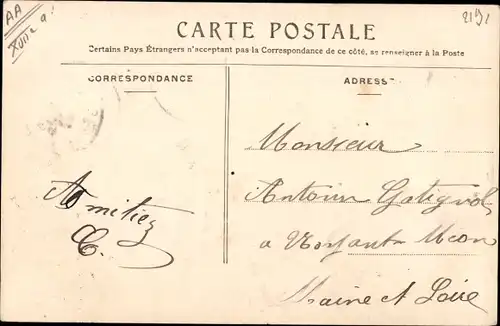 AA
CARTE POSTALE
Certains Pays Étrangers n'acceptent pas la Correspondance de ce côté, se renseigner à la Poste
CORRESPONDANCE
ADRESS
Monsieur
Antoin Gatignol
Amitiez
C.
a
Maine et Loire